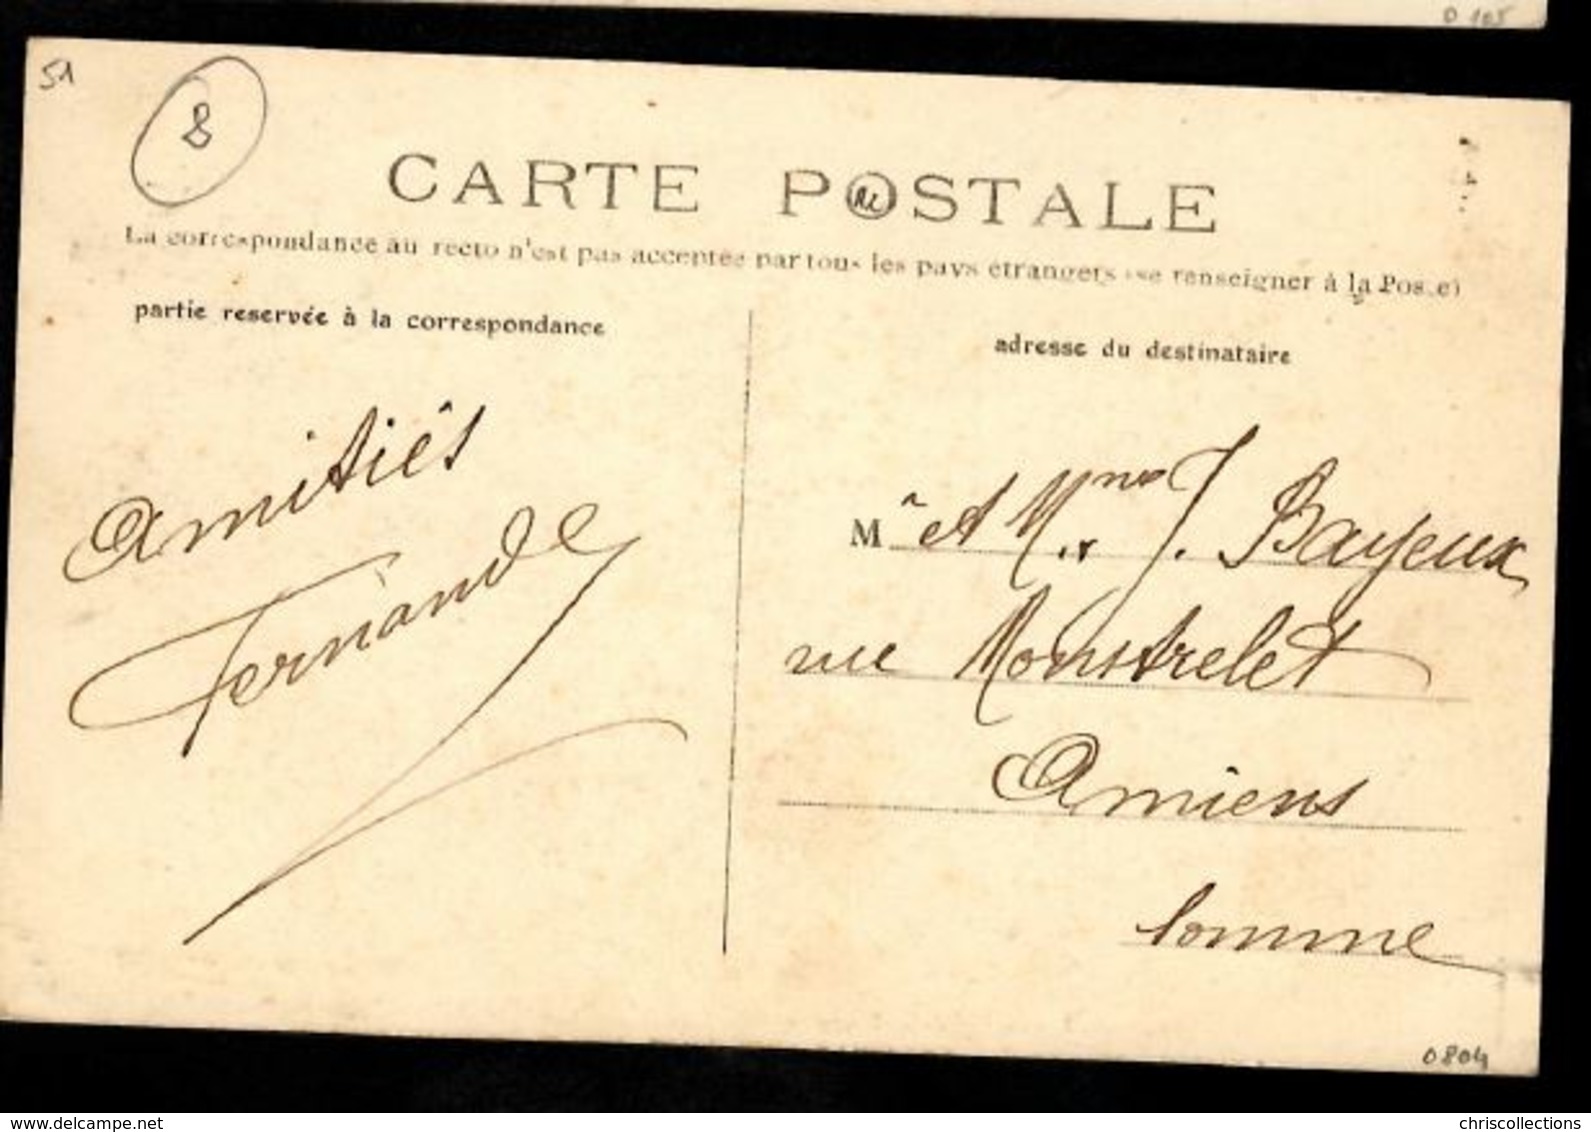 0 105
51
8
CARTE POSTALE
La correspondance au recto n'est pas acceptée par tous les pays étrangers (se renseigner à la Poste)
partie reservée à la correspondance
adresse du destinataire
Amitiés
Fernande
Mr et Mme J. Bayeux
rue Monstrelet
Amiens
Somme
0804
www.delcampe.net
chriscollections